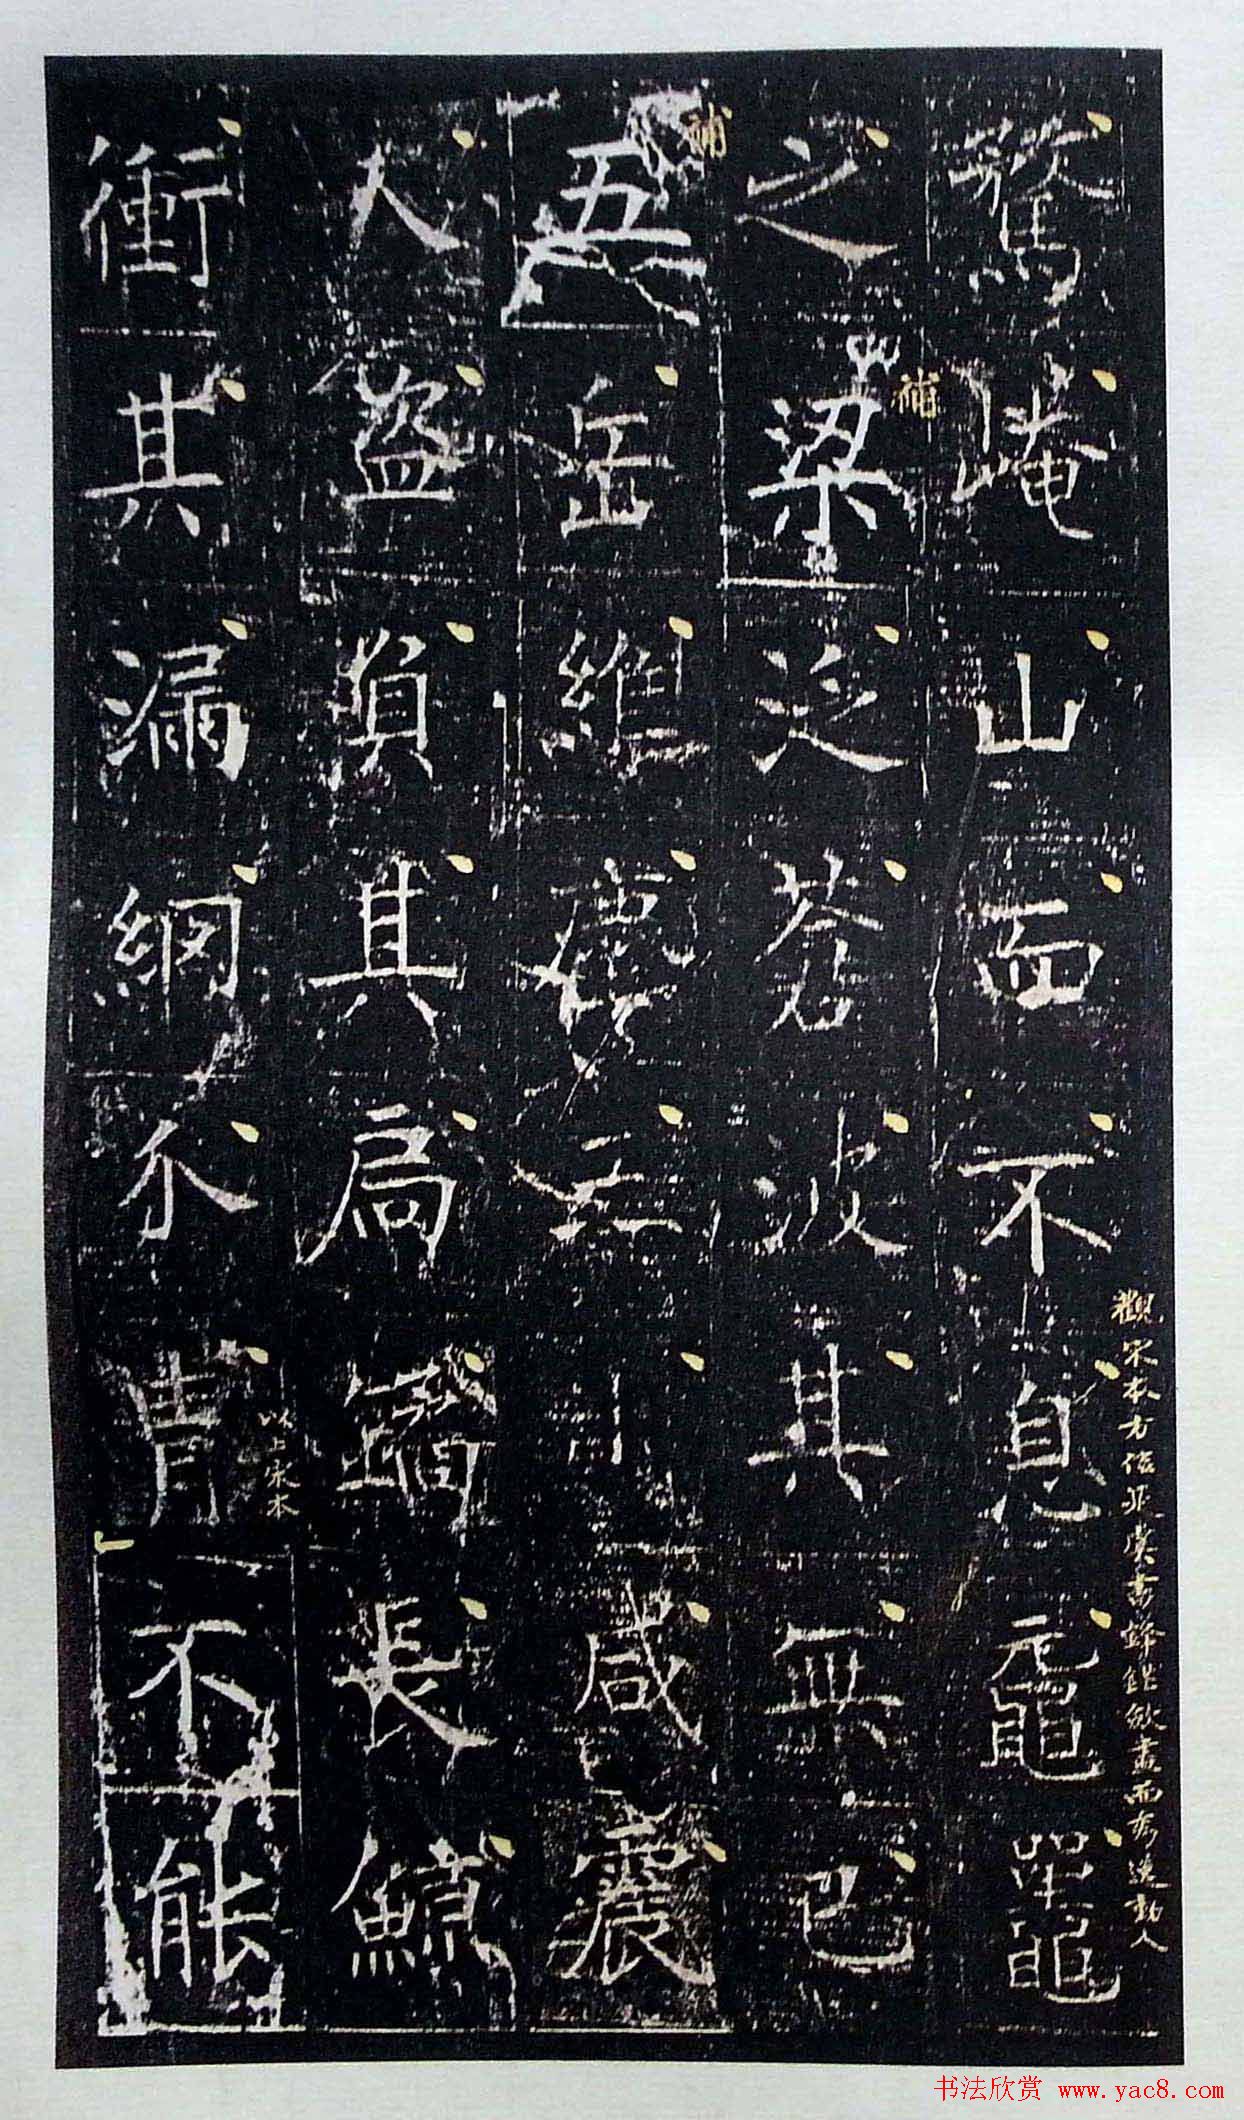 鶩崦山而不息黿鼉
之梁泛蒼波其無已
五岳維塵三川咸震
大盜負其扃鐍長鯨
衝其漏網介胄不能
補
補
以上宋本
觀宋本方信非虞書鋒鋩斂盡而秀逸動人
书法欣赏 www.yac8.com